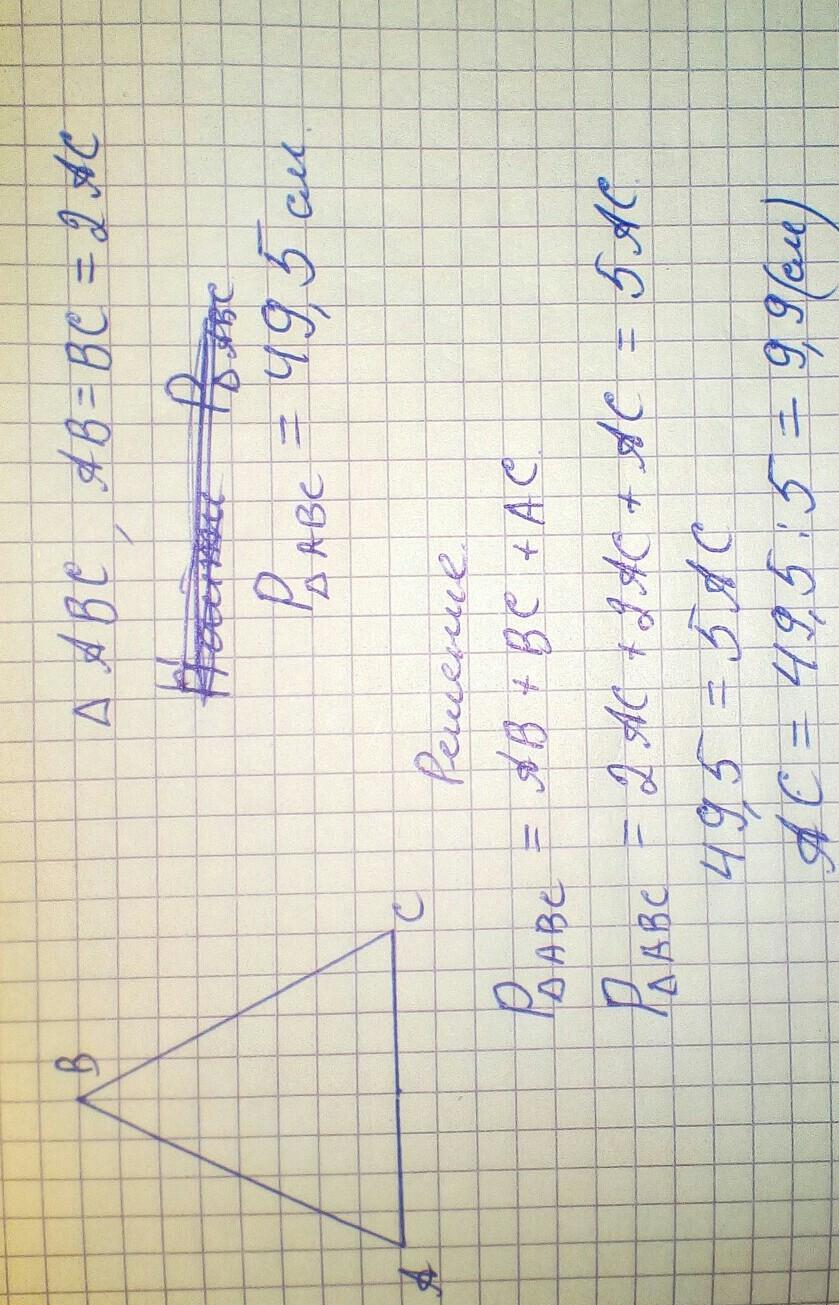 B
A
C
Δ ABC, AB = BC = 2 AC
Найти P Δ ABC
P Δ ABC = 49,5 см.
Решение
P Δ ABC = AB + BC + AC
P Δ ABC = 2 AC + 2 AC + AC = 5 AC
49,5 = 5 AC
AC = 49,5 : 5 = 9,9 (см)